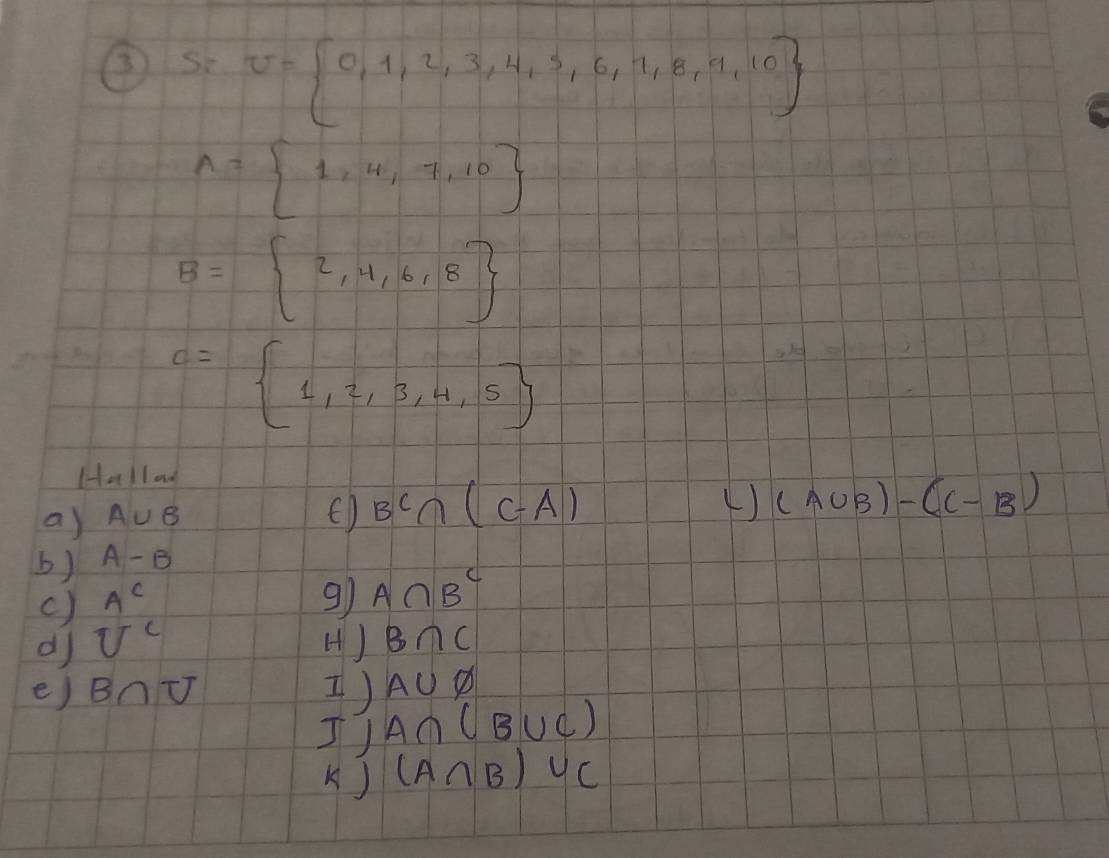 ③ S: U = {0, 1, 2, 3, 4, 5, 6, 7, 8, 9, 10}
A = {1, 4, 7, 10}
B = {2, 4, 6, 8}
C = {1, 2, 3, 4, 5}
Hallar
a) A∪B
b) A-B
c) Aᶜ
d) Uᶜ
e) B∩U
f) Bᶜ∩(C-A)
g) A∩Bᶜ
H) B∩C
I) A∪Ø
J) A∩(B∪C)
K) (A∩B)∪C
L) (A∪B)-(C-B)